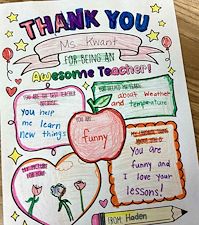 THANK YOU
Ms. Kwant
FOR BEING AN
Awesome Teacher!
YOU ARE THE BEST TEACHER
BECAUSE
You help
me learn
new things
YOU HELPED ME LEARN
about Weather
and temperature
YOU ARE
funny
You are
funny and
I love your
lessons!
FROM Haden